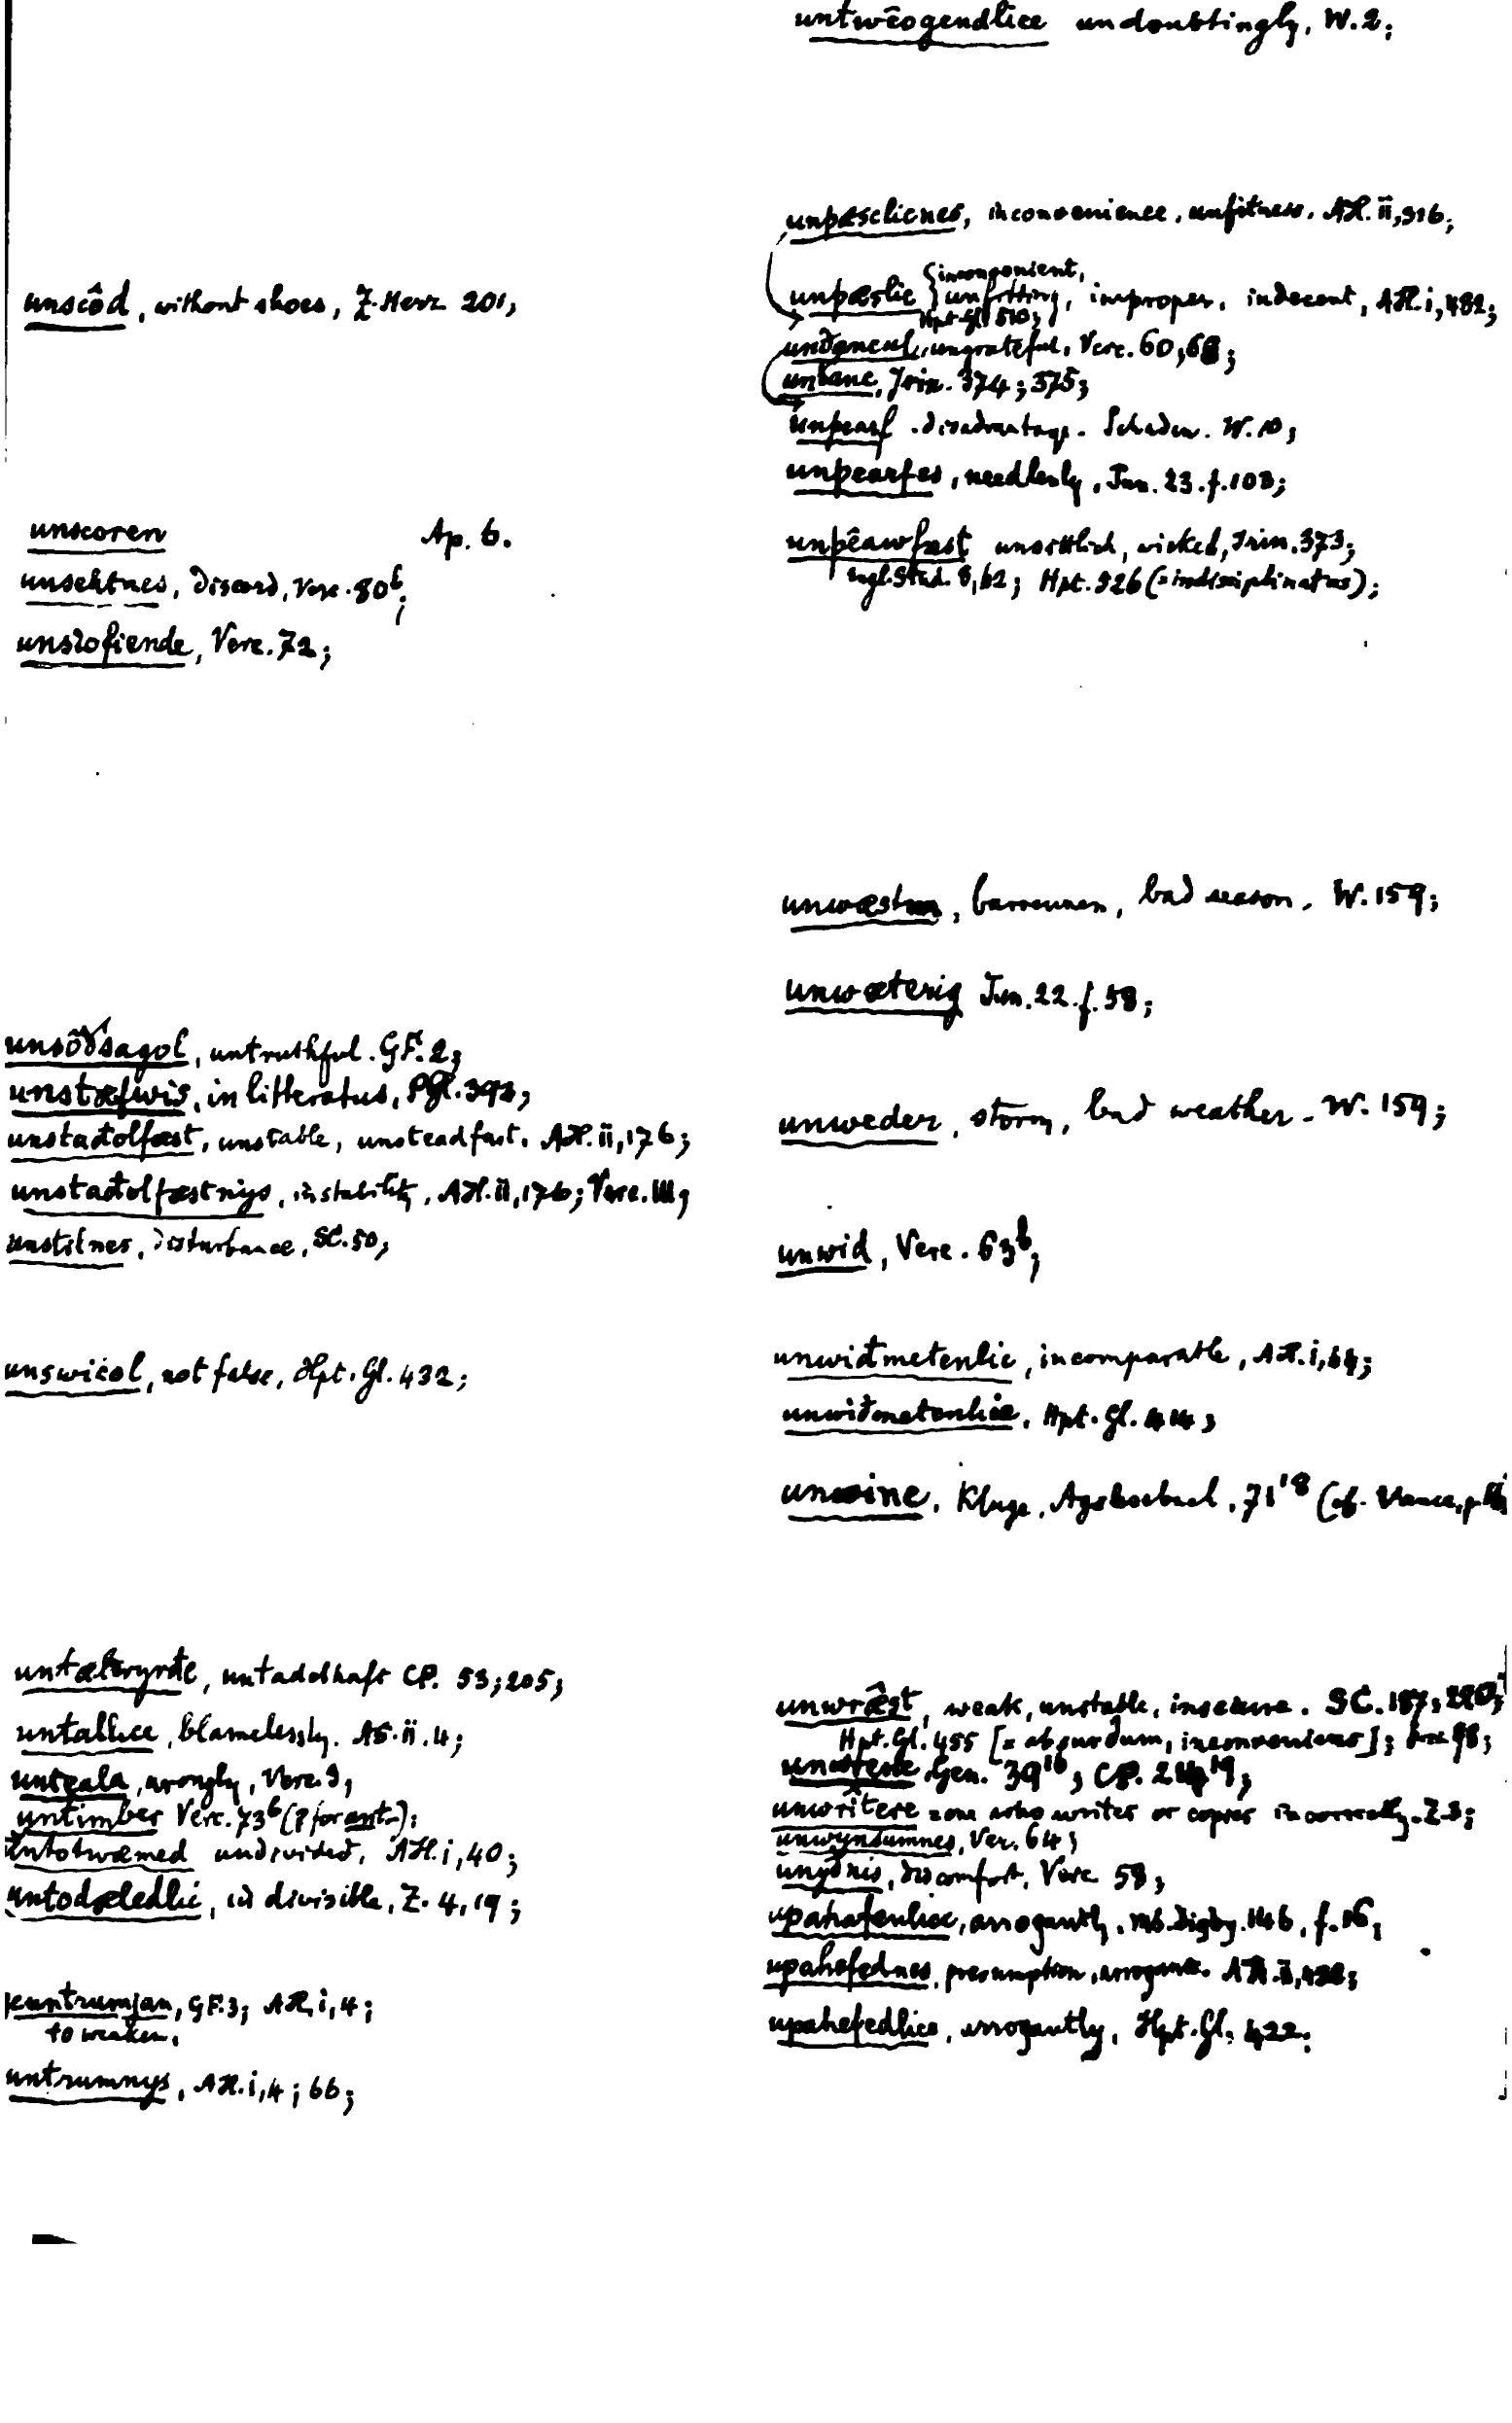 unscôd, without shoes, Z. Herr 201;
unscoren Ap. 6.
unsehtnes, discord, Verc. 80b;
unslofiende, Verc. 72;
unsôðsagol, untruthful. GF. 2;
unstæfwis, in litteratus, PGl. 392;
unstaðolfæst, unstable, unsteadfast. AH. ii, 176;
unstaðolfæstnys, instability, AH. ii, 176; Verc. 111;
unstilnes, disturbance, SC. 50;
unswicol, not false, Hpt. Gl. 432;
untælwyrðe, untadelhaft CP. 53; 205;
untallice, blamelessly. AS. ii. 4;
unteala, wrongly, Verc. 9;
untimber Verc. 73b (? for ant-);
untotwæmed undivided, AH. i, 40;
untodæledlic, indivisible, Z. 4, 19;
untrumjan, GF. 3; AH. i, 4;
to weaken.
untrumnys, AH. i, 4; 66;
untwêogendlice undoubtingly, W. 2;
unþæslicnes, inconvenience, unfitness. AH. ii, 316;
unþæslic {inconvenient, unfitting, improper, indecent, AH. i, 432;
Hpt. Gl. 510;
ungrateful, Verc. 60, 68;
unðanc, Trin. 374; 375;
unþearf. disadvantage. Schaden. W. 10;
unþearfes, needlessly, Jun. 23. f. 103;
unþêawfæst unsittlich, wicked, Trin. 373;
Engl. Stud. 8, 62; Hpt. 526 (= indisciplinatus);
unwæstm, barrenness, bad season. W. 159;
unwæterig Jun. 22. f. 58;
unweder, storm, bad weather. W. 159;
unwid, Verc. 63b;
unwiðmetenlic, incomparable, AH. i, 64;
unwiðmetenlice, Hpt. Gl. 414;
unwine, Kluge, Agslesebuch, 71 18 (cf.
unwrǽst, weak, unstable, insecure. SC. 187; 220;
Hpt. Gl. 455 [= absurdum, inconveniens]; 98;
Gen. 39 16; CP.
unwrîtere = one who writes or copies incorrectly. Z. 3;
unwynsumnes, Ver. 64;
unyðnis, discomfort, Verc 58;
upahafenlice, arrogantly. MS. Digby. 146, f. 16;
upahefednes, presumption, arrogance. AH. ii,
upahefedlice, arrogantly, Hpt. Gl. 422;